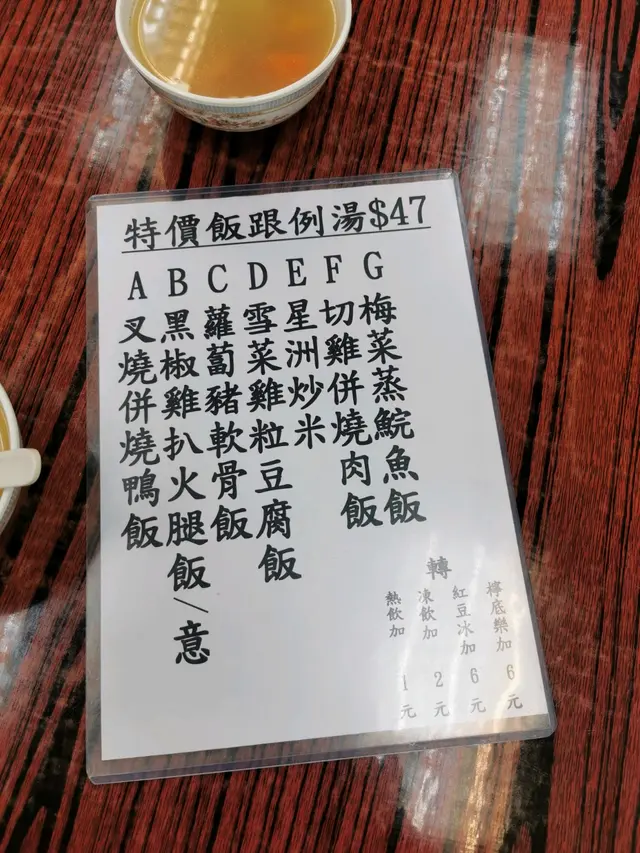 特價飯跟例湯$47
A 叉燒併燒鴨飯
B 黑椒雞扒火腿飯/意
C 蘿蔔豬軟骨飯
D 雪菜雞粒豆腐飯
E 星洲炒米
F 切雞併燒肉飯
G 梅菜蒸鯇魚飯
轉
熱飲加1元
凍飲加2元
紅豆冰加6元
檸底樂加6元